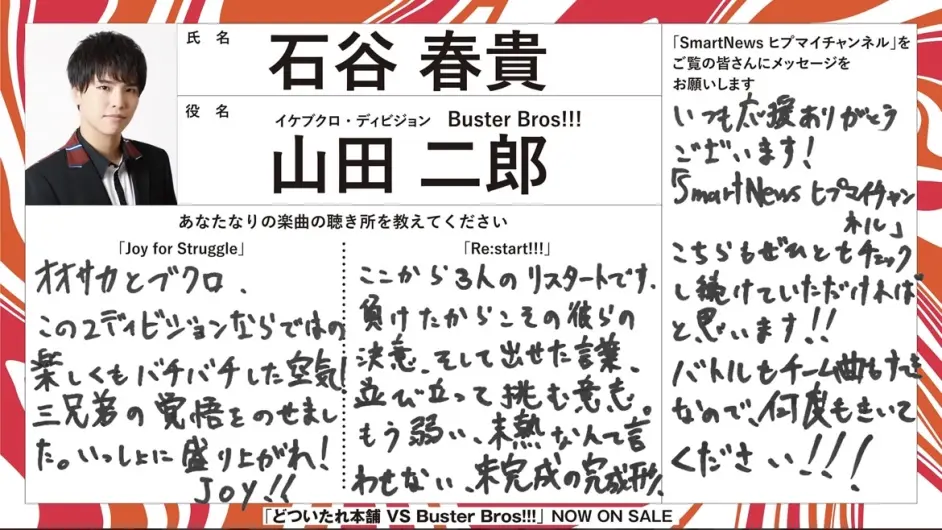 氏 名
石谷 春貴
役 名
イケブクロ・ディビジョン Buster Bros!!!
山田 二郎
あなたなりの楽曲の聴き所を教えてください
「Joy for Struggle」
オオサカとブクロ、
この2ディビジョンならではの
楽しくもバチバチした空気!
三兄弟の覚悟をのせまし
た。いっしょに盛り上がれ!
JOY!!
「Re:start!!!」
ここから3人のリスタートです。
負けたからこその彼らの
決意、そして出せた言葉、
並び立って挑む意志。
もう弱い、未熟なんて言
わせない、未完成の完成形。
「SmartNews ヒプマイチャンネル」を
ご覧の皆さんにメッセージを
お願いします
いつも応援ありがとう
ございます!
「SmartNews ヒプマイチャン
ネル」
こちらもぜひともチェック
し続けていただければ
と思います!!
バトルもチーム曲もすてき
なので、何度もきいて
ください!!!
「どついたれ本舗 VS Buster Bros!!!」NOW ON SALE